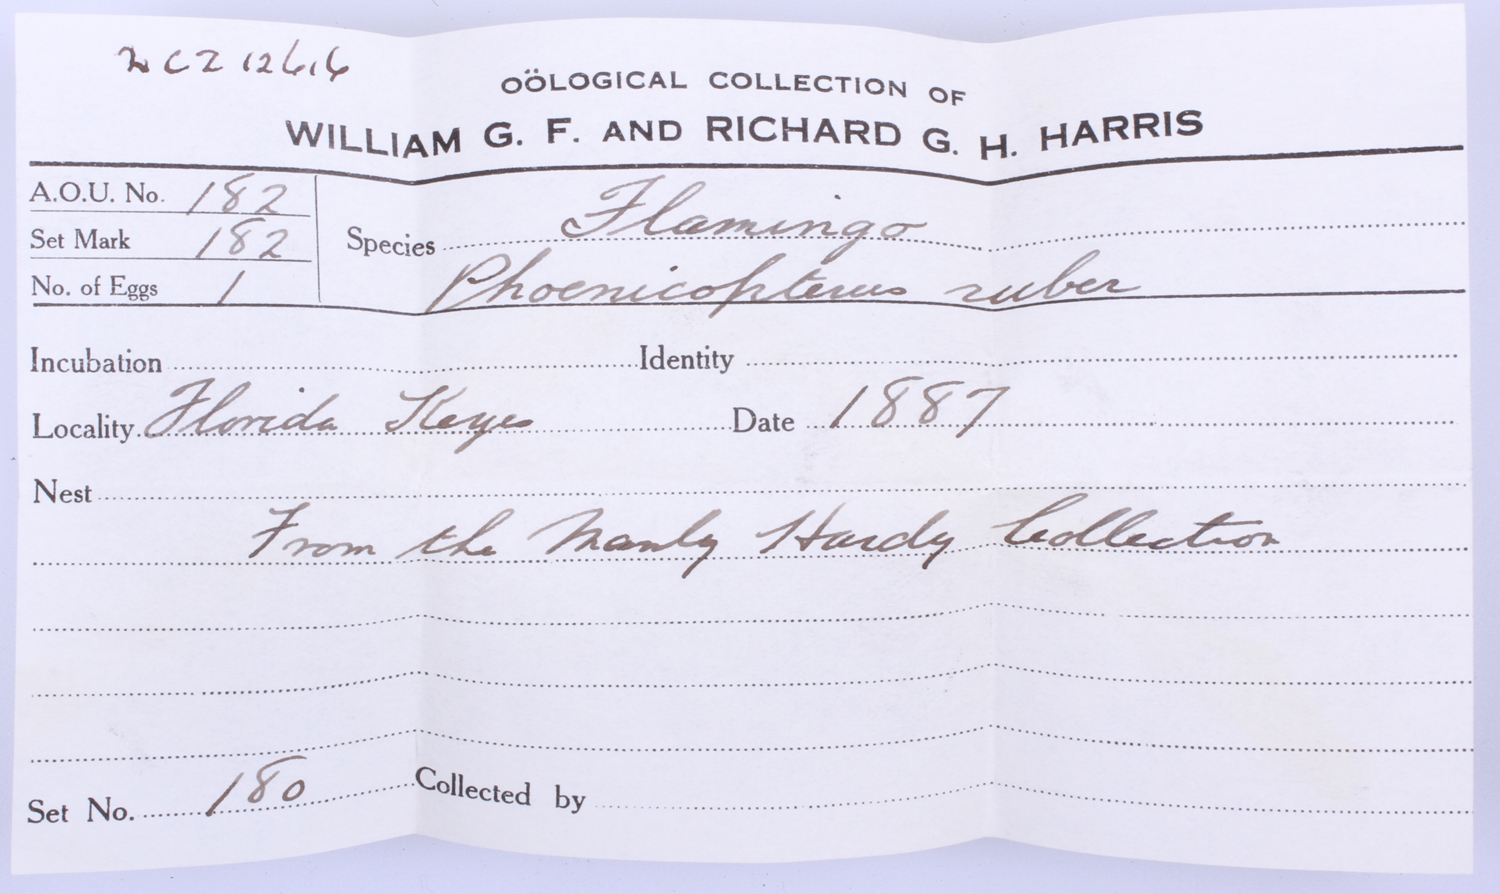 MCZ 12616
OÖLOGICAL COLLECTION OF
WILLIAM G. F. AND RICHARD G. H. HARRIS
A.O.U. No. 182
Set Mark 182
No. of Eggs 1
Species Flamingo
Phoenicopterus ruber
Incubation Identity
Locality Florida Keyes Date 1887
Nest
From the Manly Hardy Collection
Set No. 180 Collected by